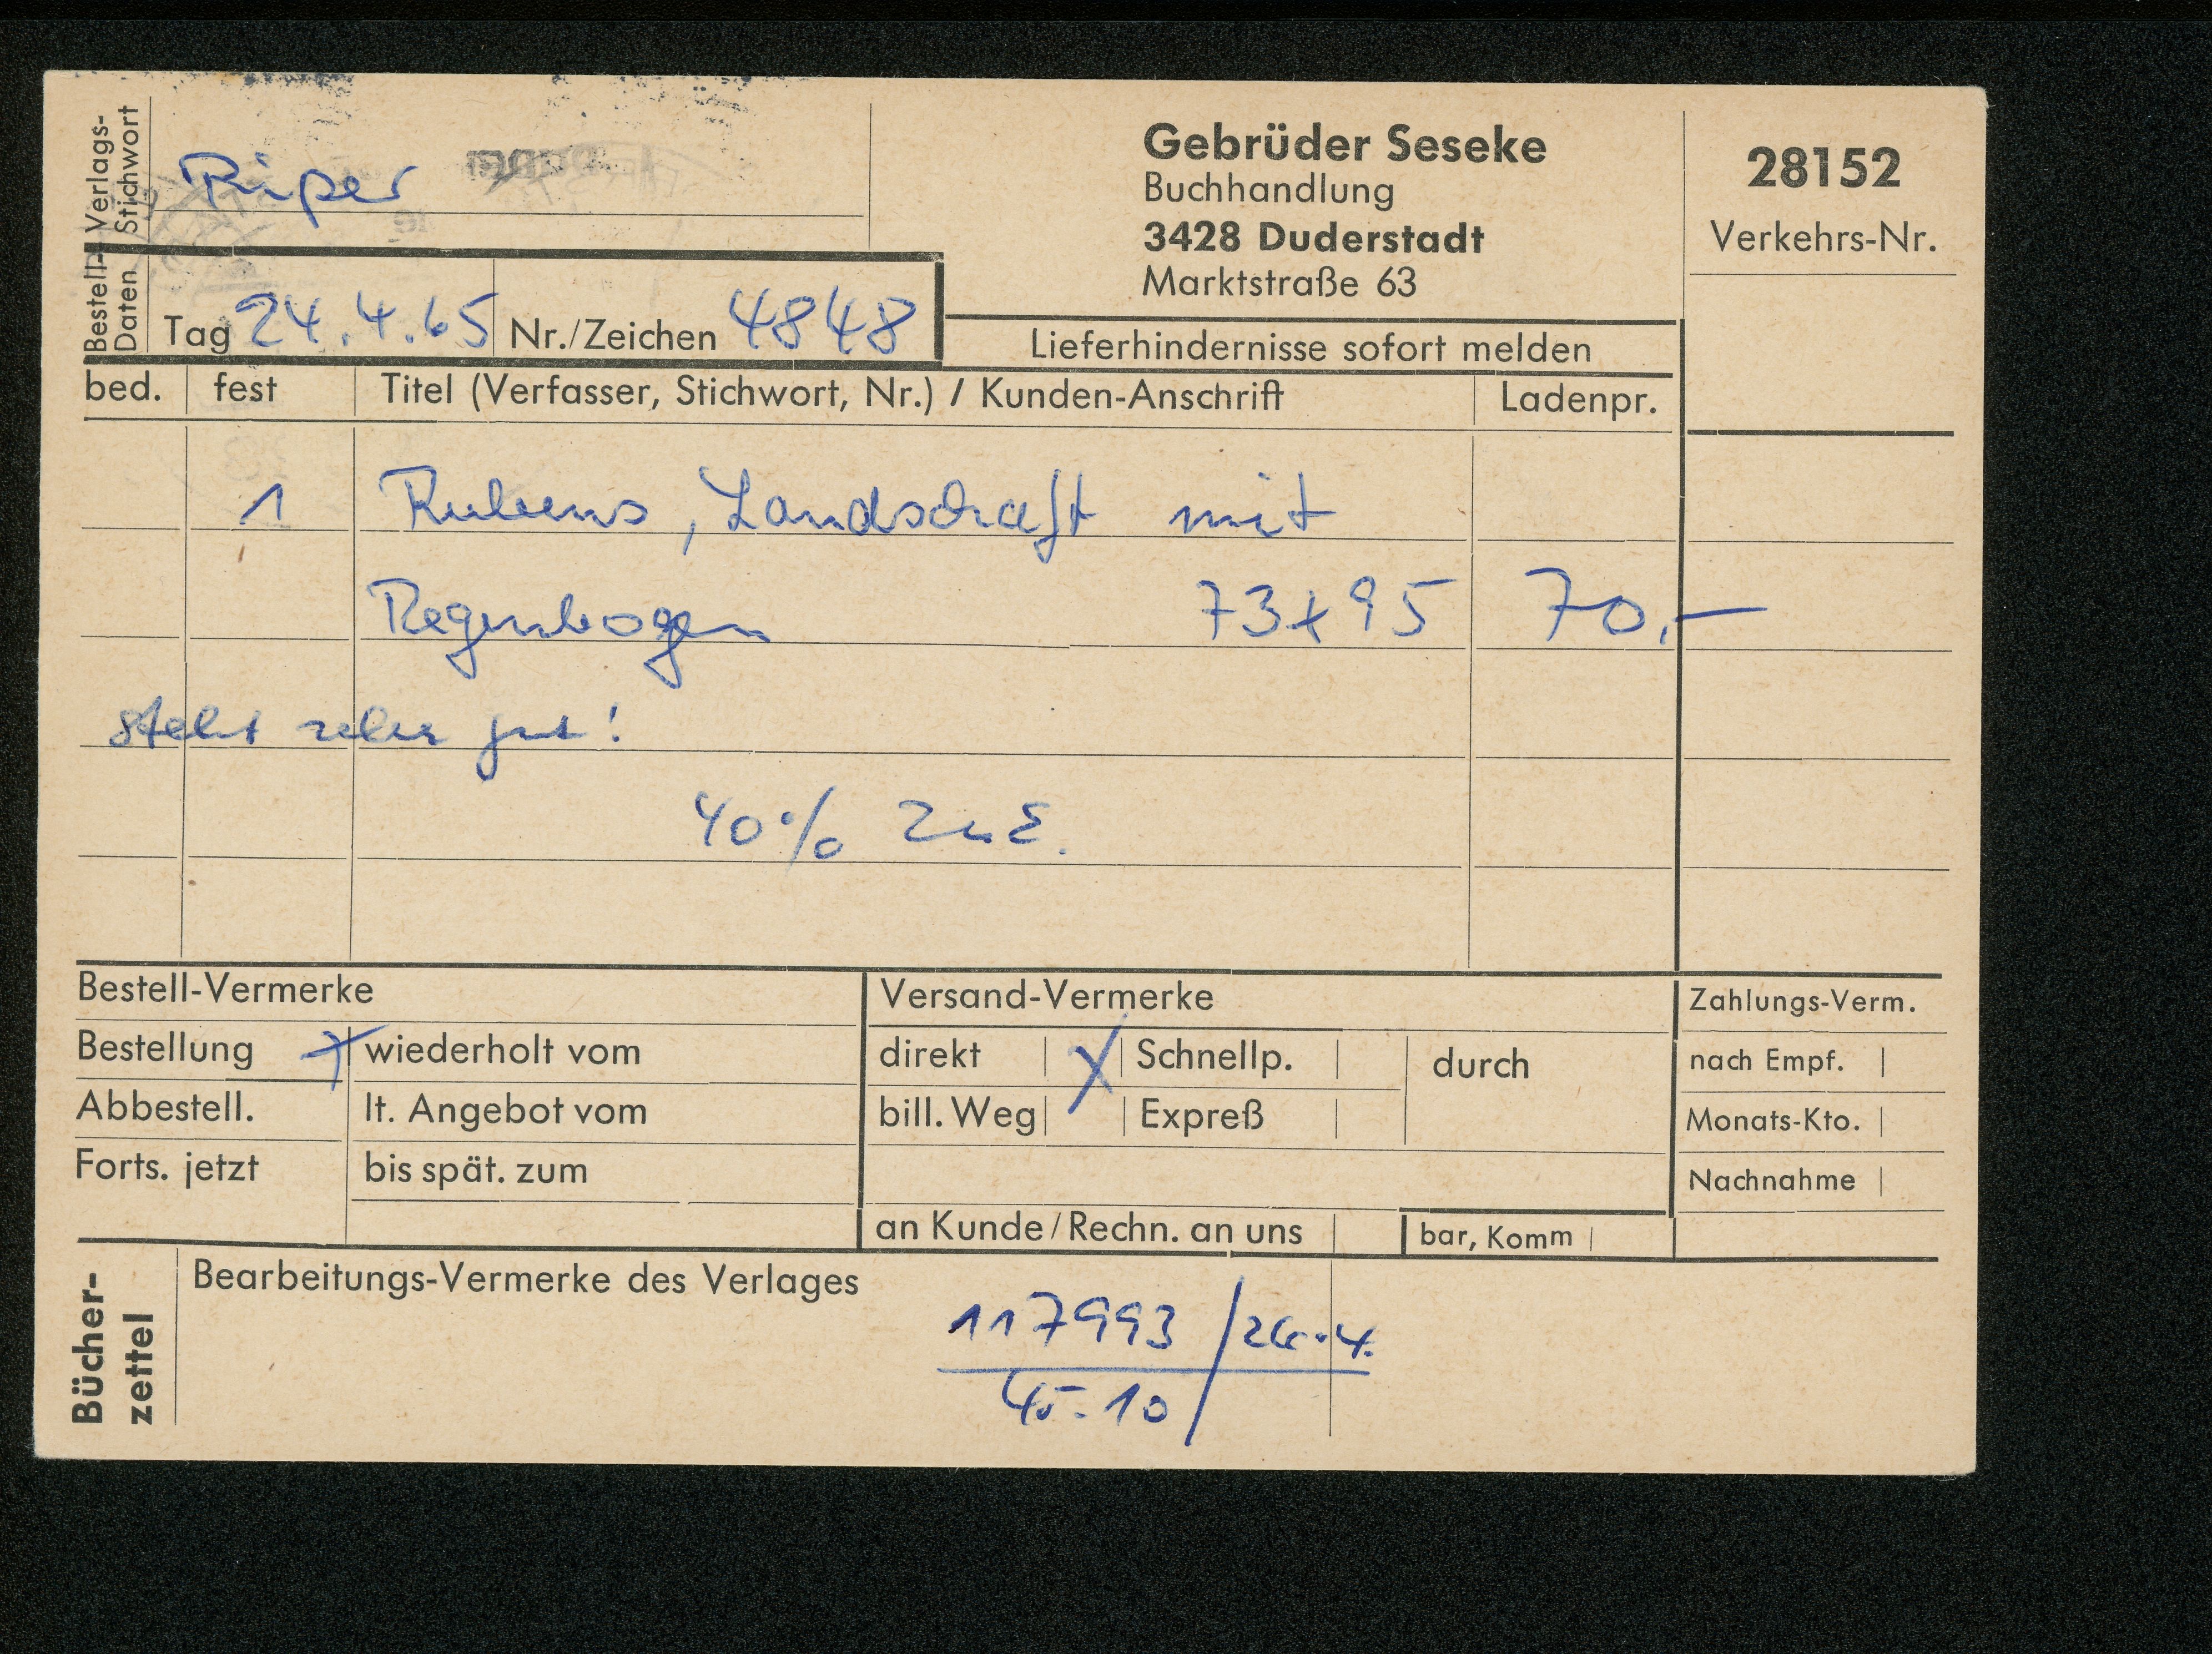 Verlags-
Stichwort
Piper
Gebrüder Seseke
Buchhandlung
3428 Duderstadt
Marktstraße 63
28152
Verkehrs-Nr.
Bestell-
Daten
Tag 24.4.65 Nr./Zeichen 4848
Lieferhindernisse sofort melden
bed. fest Titel (Verfasser, Stichwort, Nr.) / Kunden-Anschrift Ladenpr.
1 Rubens, Landschaft mit
Regenbogen 73x95 70,-
steht sehr gut!
40%
Bestell-Vermerke Versand-Vermerke Zahlungs-Verm.
Bestellung x wiederholt vom direkt x Schnellp. durch nach Empf.
Abbestell. lt. Angebot vom bill. Weg Expreß Monats-Kto.
Forts. jetzt bis spät. zum Nachnahme
an Kunde/Rechn. an uns bar, Komm
Bücher-
zettel
Bearbeitungs-Vermerke des Verlages
117993 / 26.4.
45.10